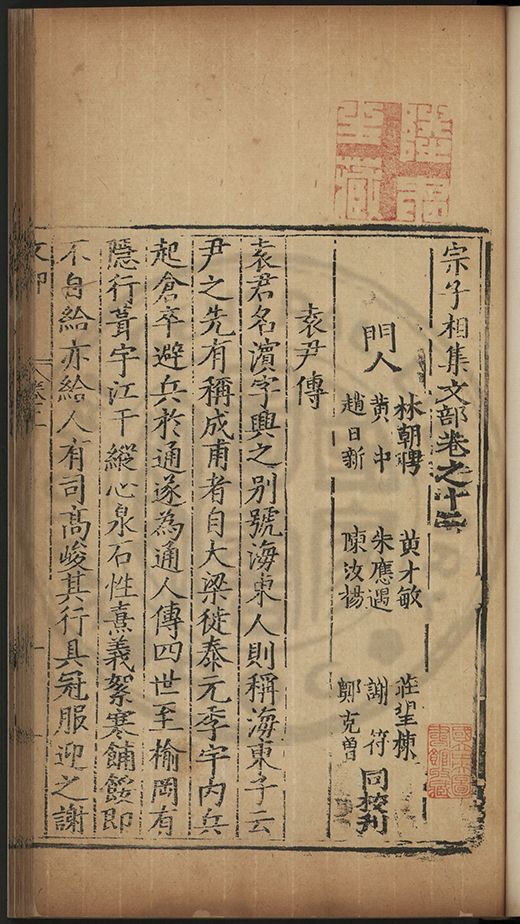 宗子相集文部卷之十二
林朝聘 黄才敏 莊望棟
門人 黄中 朱應遇 謝符 同校刊
趙日新 陳汝揚 鄭克曽
袁尹傳
袁君名濵字興之别號海東人則稱海東子云
尹之先有稱成甫者自大梁徙泰元季宇内兵
起倉卒避兵於通遂為通人傳四世至榆岡有
隱行葺宇江干縱心泉石性熹義絮寒餔餒即
不自給亦給人有司髙峻其行具冠服迎之謝
文部